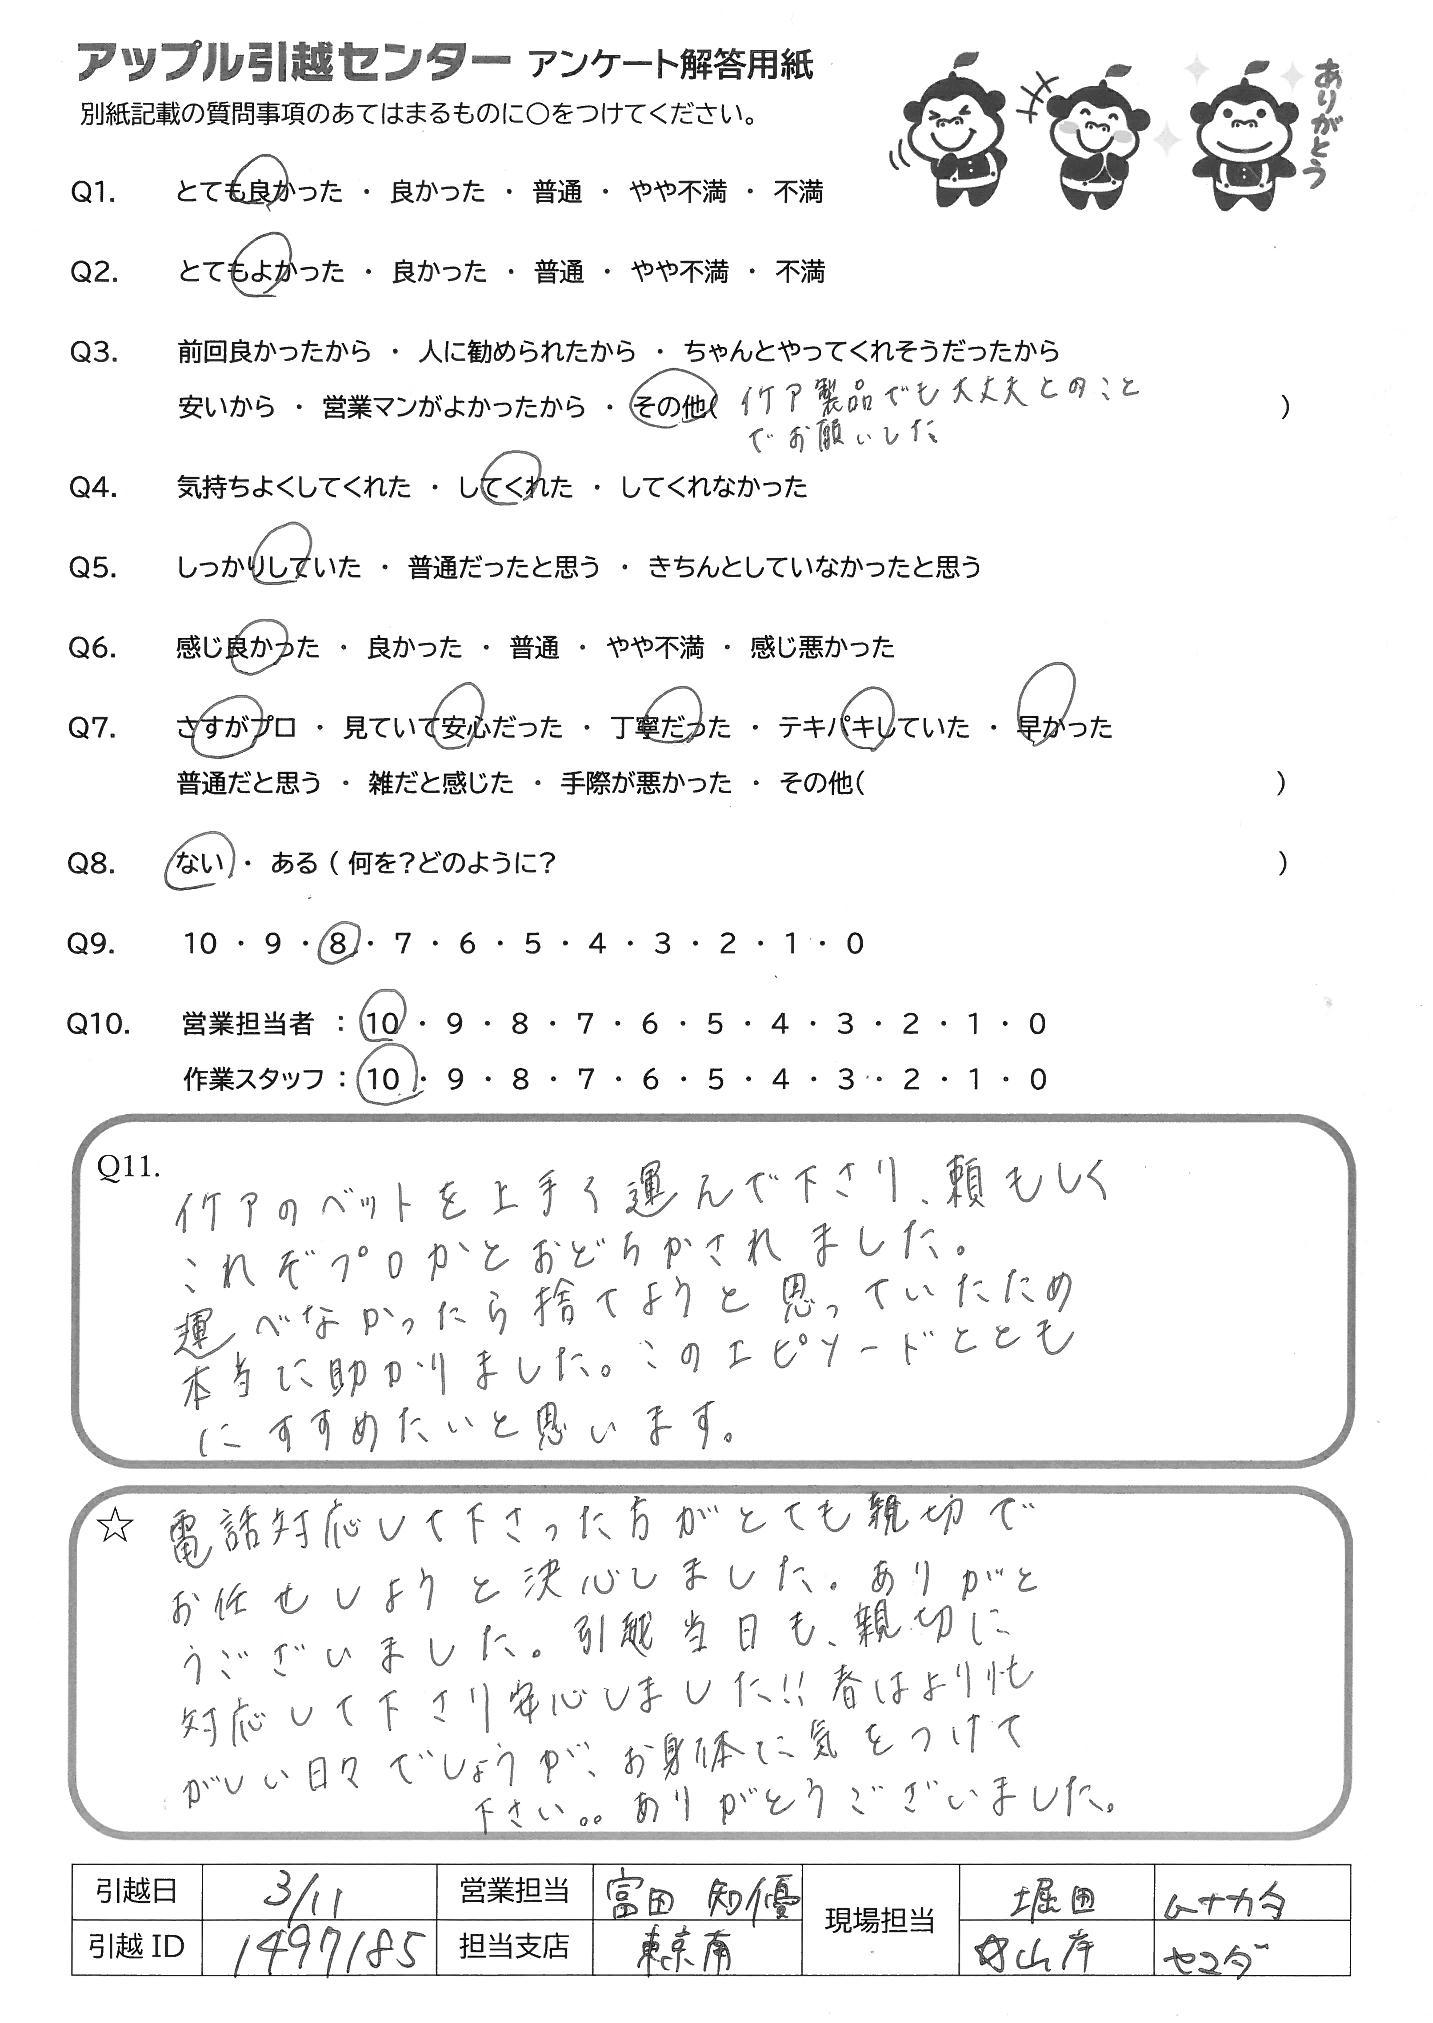 アップル引越センター アンケート解答用紙
別紙記載の質問事項のあてはまるものに○をつけてください。
ありがとう
Q1. とても良かった ・ 良かった ・ 普通 ・ やや不満 ・ 不満
Q2. とてもよかった ・ 良かった ・ 普通 ・ やや不満 ・ 不満
Q3. 前回良かったから ・ 人に勧められたから ・ ちゃんとやってくれそうだったから
安いから ・ 営業マンがよかったから ・ その他( イケア製品でも大丈夫とのこと )
でお願いした。
Q4. 気持ちよくしてくれた ・ してくれた ・ してくれなかった
Q5. しっかりしていた ・ 普通だったと思う ・ きちんとしていなかったと思う
Q6. 感じ良かった ・ 良かった ・ 普通 ・ やや不満 ・ 感じ悪かった
Q7. さすがプロ ・ 見ていて安心だった ・ 丁寧だった ・ テキパキしていた ・ 早かった
普通だと思う ・ 雑だと感じた ・ 手際が悪かった ・ その他( )
Q8. ない ・ ある ( 何を?どのように? )
Q9. 10 ・ 9 ・ 8 ・ 7 ・ 6 ・ 5 ・ 4 ・ 3 ・ 2 ・ 1 ・ 0
Q10. 営業担当者 : 10 ・ 9 ・ 8 ・ 7 ・ 6 ・ 5 ・ 4 ・ 3 ・ 2 ・ 1 ・ 0
作業スタッフ : 10 ・ 9 ・ 8 ・ 7 ・ 6 ・ 5 ・ 4 ・ 3 ・ 2 ・ 1 ・ 0
Q11.
イケアのベットを上手く運んで下さり、頼もしく
これぞプロかとおどろかされました。
運べなかったら捨てようと思っていたため
本当に助かりました。このエピソードととも
にすすめたいと思います。
☆ 電話対応して下さった方がとても親切で
お任せしようと決心しました。ありがと
うございました。引越当日も、親切に
対応して下さり安心しました!!春はより忙
がしい日々でしょうが、お身体に気をつけて
下さい。。ありがとうございました。
引越日 3/11 営業担当 富田 知優 現場担当 堀田 ムナカタ
引越 ID 1497185 担当支店 東京南 山岸 セマダ